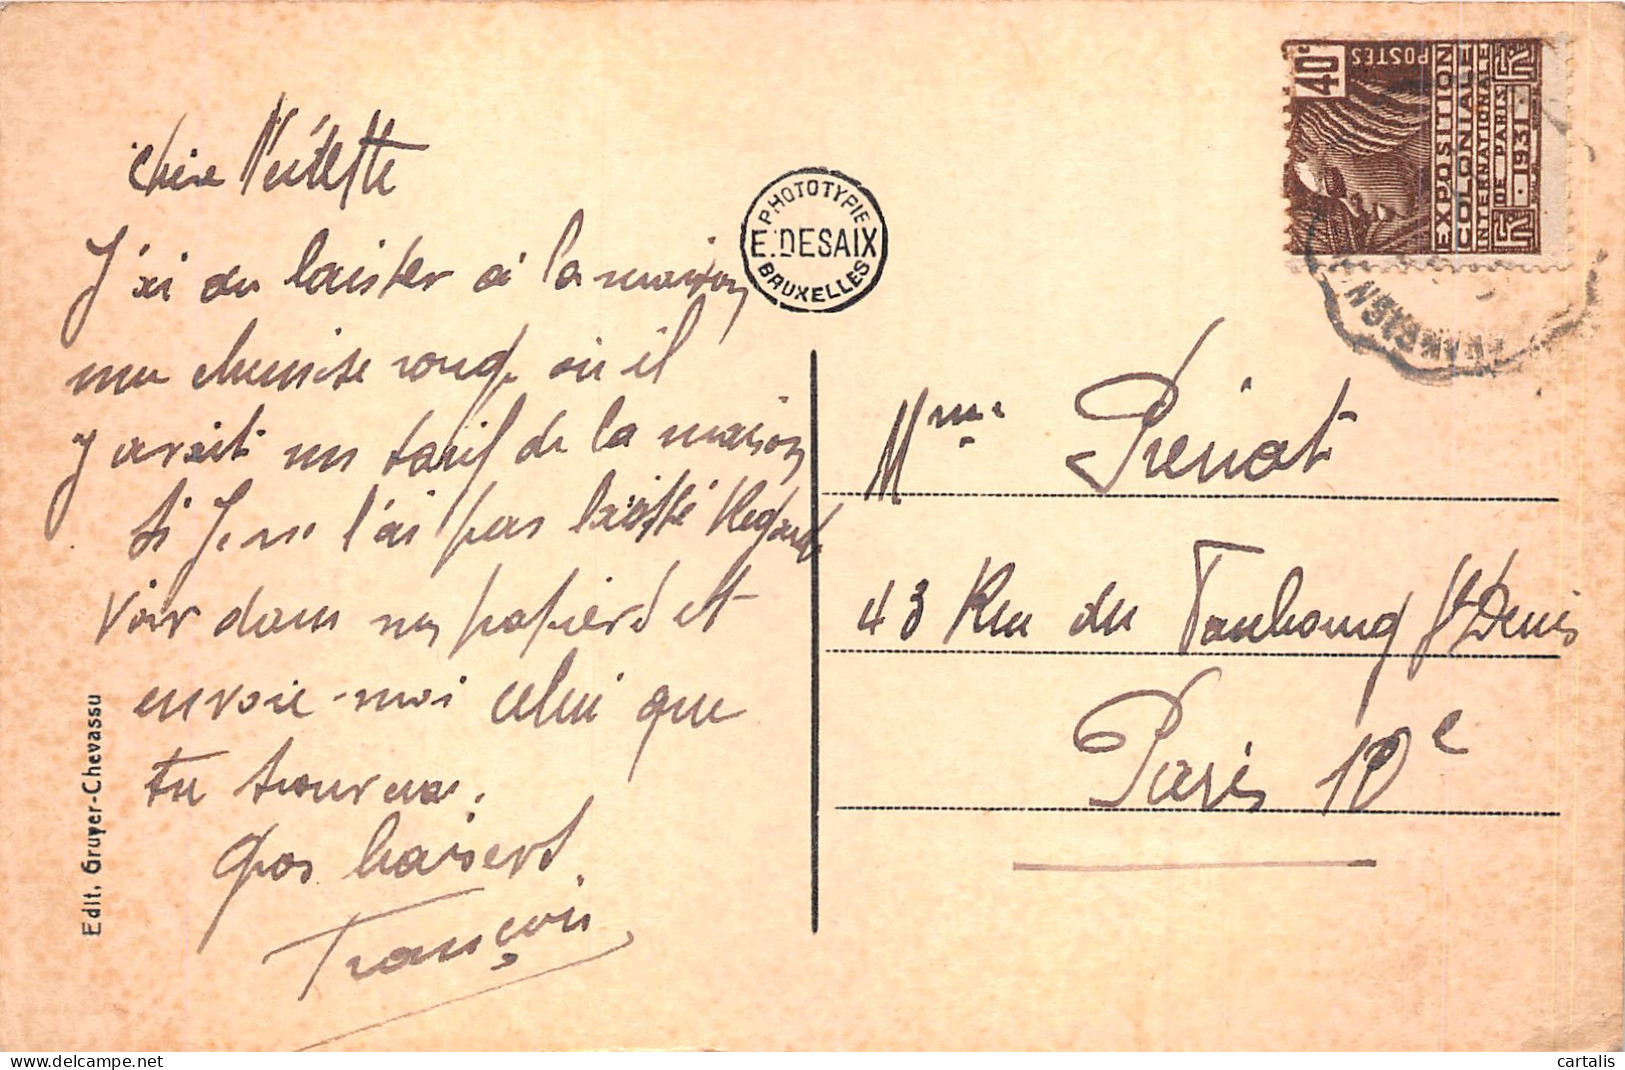 Chère
J'ai du laisser à la maison
ma chemise rouge où il
y avait un tarif de la maison
si je ne l'ai pas laissé Regarde
voir dans mes papiers et
envoie-moi celui que
tu trouveras.
Gros baisers
François
Edit. Gruyer-Chevassu
PHOTOTYPIE
E. DESAIX
BRUXELLES
40c
POSTES
EXPOSITION
COLONIALE
INTERNATIONALE
DE PARIS
1931
Mme Préniat
43 Rue du Faubourg St Denis
Paris 10e
cartalis